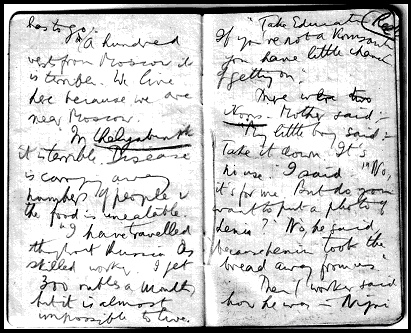 has to go."
"A hundred
versts from Moscow it
is terrible. We live
here because we are
near Moscow.
In Chelyabinsk
it is terrible. Disease
is carrying away
numbers of people &
the food is uneatable.
"I have travelled
throughout Russia as
skilled worker. I get
300 roubles a month,
but it is almost
impossible to live.
"Take Education
If you're not a Komsomol
you have little chance
of getting on."
There two
Icons. Mother said :-
"My little boy said :-
Take it down. It's
no use. I said "No,
it's for me. But do you
want to put a photo of
Lenin?" No, he said,
because Lenin took the
bread away from us"
Then worker said
how he was